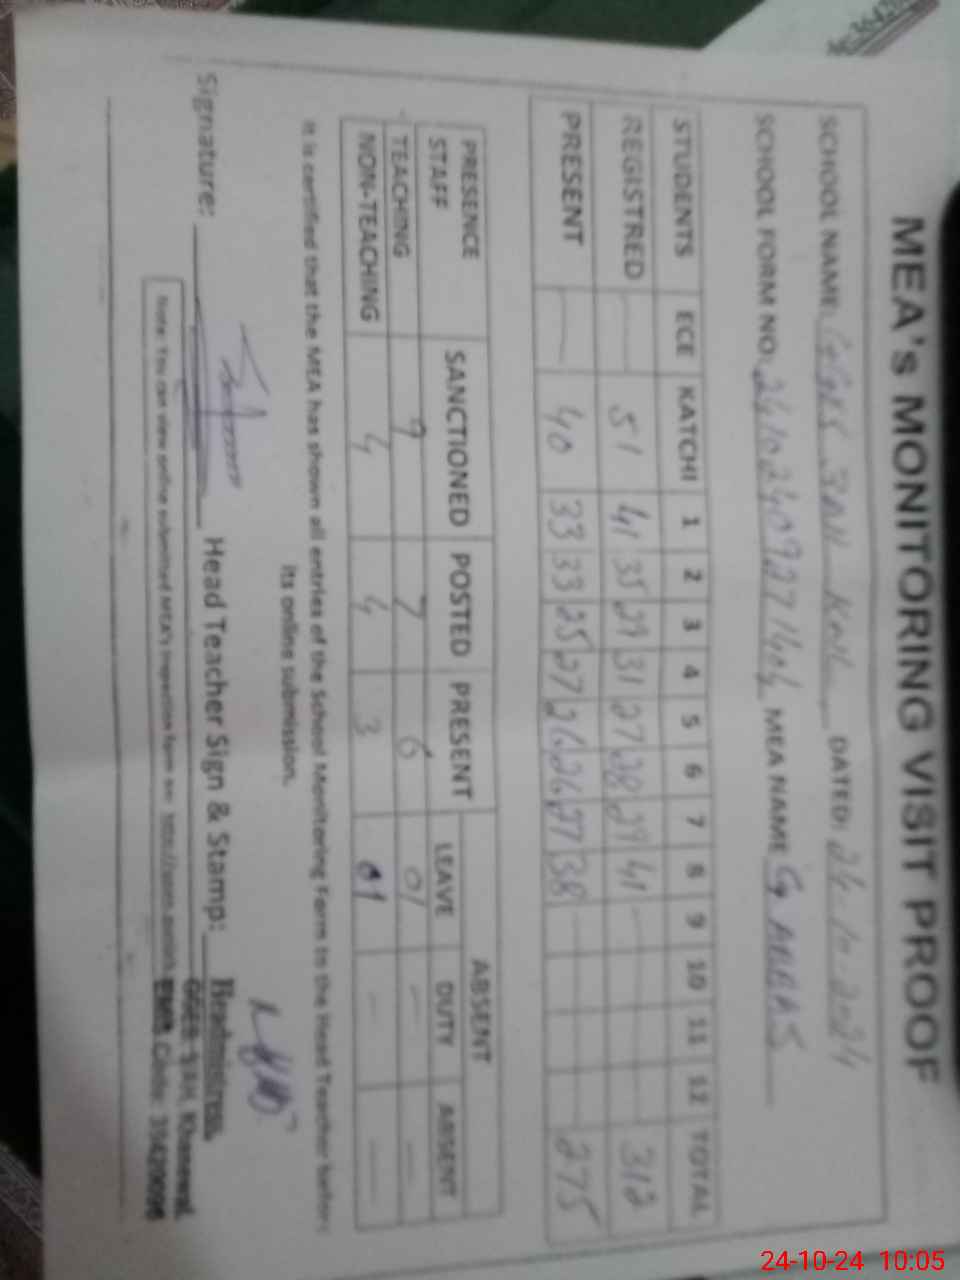 MEA's MONITORING VISIT PROOF
SCHOOL NAME: DATED: 24-10-2024
SCHOOL FORM NO: 24102409271404 MEA NAME G ABBAS
STUDENTS ECE KATCHI 1 2 3 4 5 6 7 8 9 10 11 12 TOTAL
REGISTRED — 51 41 35 29 31 27 28 29 41 — 312
PRESENT — 40 33 33 25 27 26 26 27 38 — 275
PRESENCE STAFF SANCTIONED POSTED PRESENT ABSENT
LEAVE DUTY ABSENT
TEACHING 9 7 6 01 — —
NON-TEACHING 4 4 3 01 — —
It is certified that the MEA has shown all entries of the School Monitoring Form to the Head Teacher before
its online submission.
Signature: Head Teacher Sign & Stamp:
Headmistress
Khanewal
EMIS Code:
Note: You can view online submitted MEA's inspection form on:
24-10-24 10:05